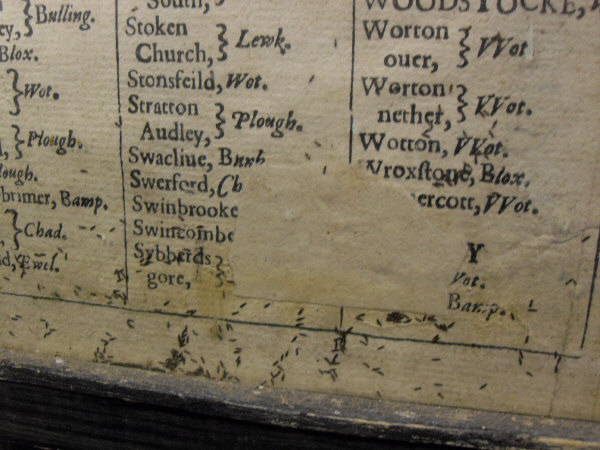 Bulling.
Blox.
Wot.
Plough.
lough.
brimer, Bamp.
Chad.
Ewel.
South,
Stoken
Church, Lewk.
Stonsfeild, Wot.
Stratton
Audley, Plough.
Swacliue, Burb
Swerford, Ch
Swinbrooke
Swincombe
Sybberds
gore,
WOODSTOCKE,
Worton
ouer, VVot
Worton
nether, VVot.
Wotton, VVot.
Wroxstone, Blox.
ercott, VVot.
Y
Vot.
Bamp.